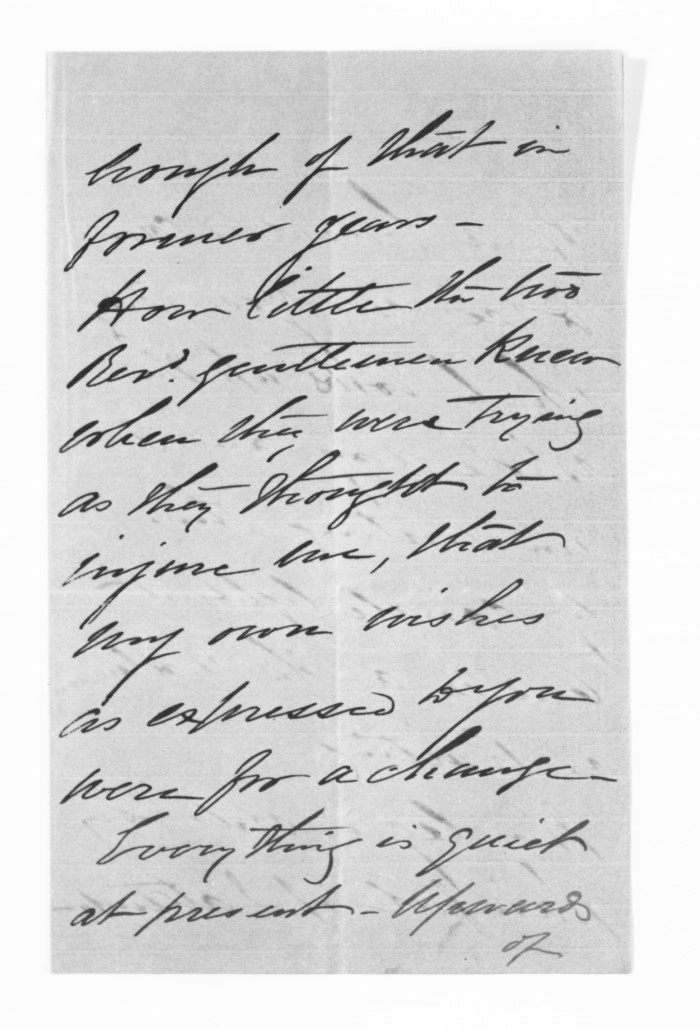 enough of that in
former years -
How little the two
Revd. gentlemen knew
when they were trying
as they thought to
injure me, that
my own wishes
as expressed to you
were for a change -
Everything is quiet
at present - Upwards
of